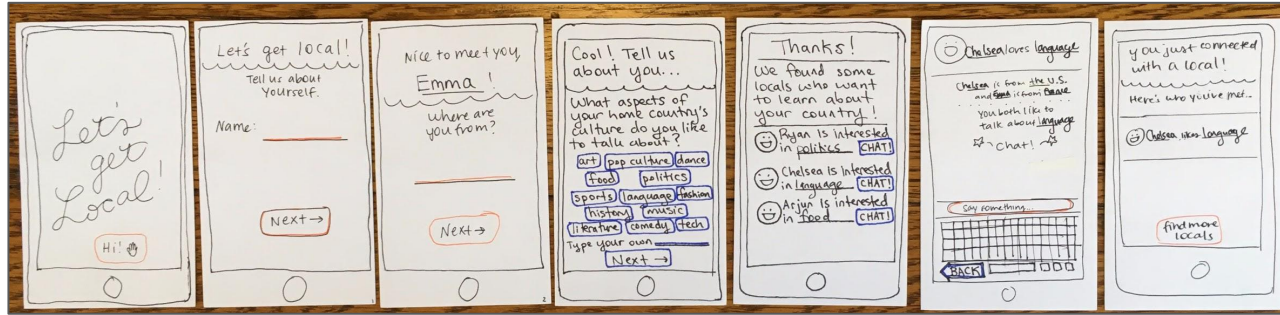 Let's
get
Local!
Hi!
Let's get local!
Tell us about
Yourself.
Name:
Next →
1
Nice to meet you,
Emma!
where are
you from?
Next →
2
Cool! Tell us
about you...
What aspects of
your home country's
culture do you like
to talk about?
art pop culture dance
food politics
sports language fashion
history music
literature comedy tech
Type your own
Next →
Thanks!
We found some
locals who want
to learn about
your country!
Ryan is interested
in politics CHAT!
Chelsea is interested
in language CHAT!
Arjun is interested
in food CHAT!
Chelsea loves language
Chelsea is from the U.S.
and is from
You both like to
talk about language
Chat!
Say something...
BACK
you just connected
with a local!
Here's who you've met...
Chelsea likes language
find more
locals